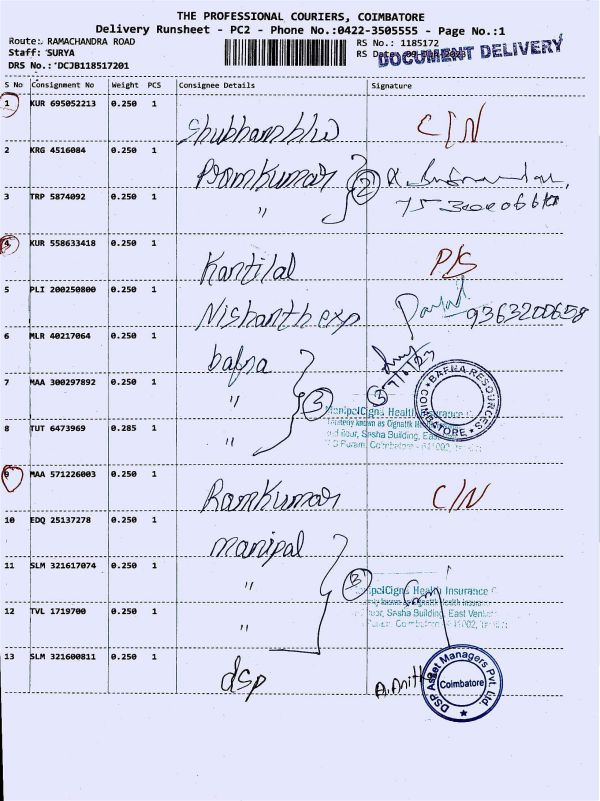 THE PROFESSIONAL COURIERS, COIMBATORE
Delivery Runsheet - PC2 - Phone No.:0422-3505555 - Page No.:1
Route: RAMACHANDRA ROAD RS No.: 1185172
Staff: SURYA RS Date: DOCUMENT DELIVERY
DRS No.: DCJB118517201
S No Consignment No Weight PCS Consignee Details Signature
1 KUR 695052213 0.250 1 Shubham C/N
2 KRG 4516084 0.250 1 Ramkumar 2
3 TRP 5874092 0.250 1 "
4 KUR 558633418 0.250 1 Kantilal P/S
5 PLI 200250800 0.250 1 Nishanth exp 9363200658
6 MLR 40217064 0.250 1 bafna
7 MAA 300297892 0.250 1 " 3 3 BAFNA RESOURCES COIMBATORE
8 TUT 6473969 0.285 1 " ManipalCigna Health Insurance
formerly known as Cignattk
Floor, Sesha Building, East
9 MAA 571226003 0.250 1 Ramkumar C/N
10 EDQ 25137278 0.250 1 manipal
11 SLM 321617074 0.250 1 " 3 ManipalCigna Health Insurance
Sesha Building, East
12 TVL 1719700 0.250 1 "
13 SLM 321600811 0.250 1 dsp A.Anitha DSP Asset Managers Pvt. Ltd. Coimbatore